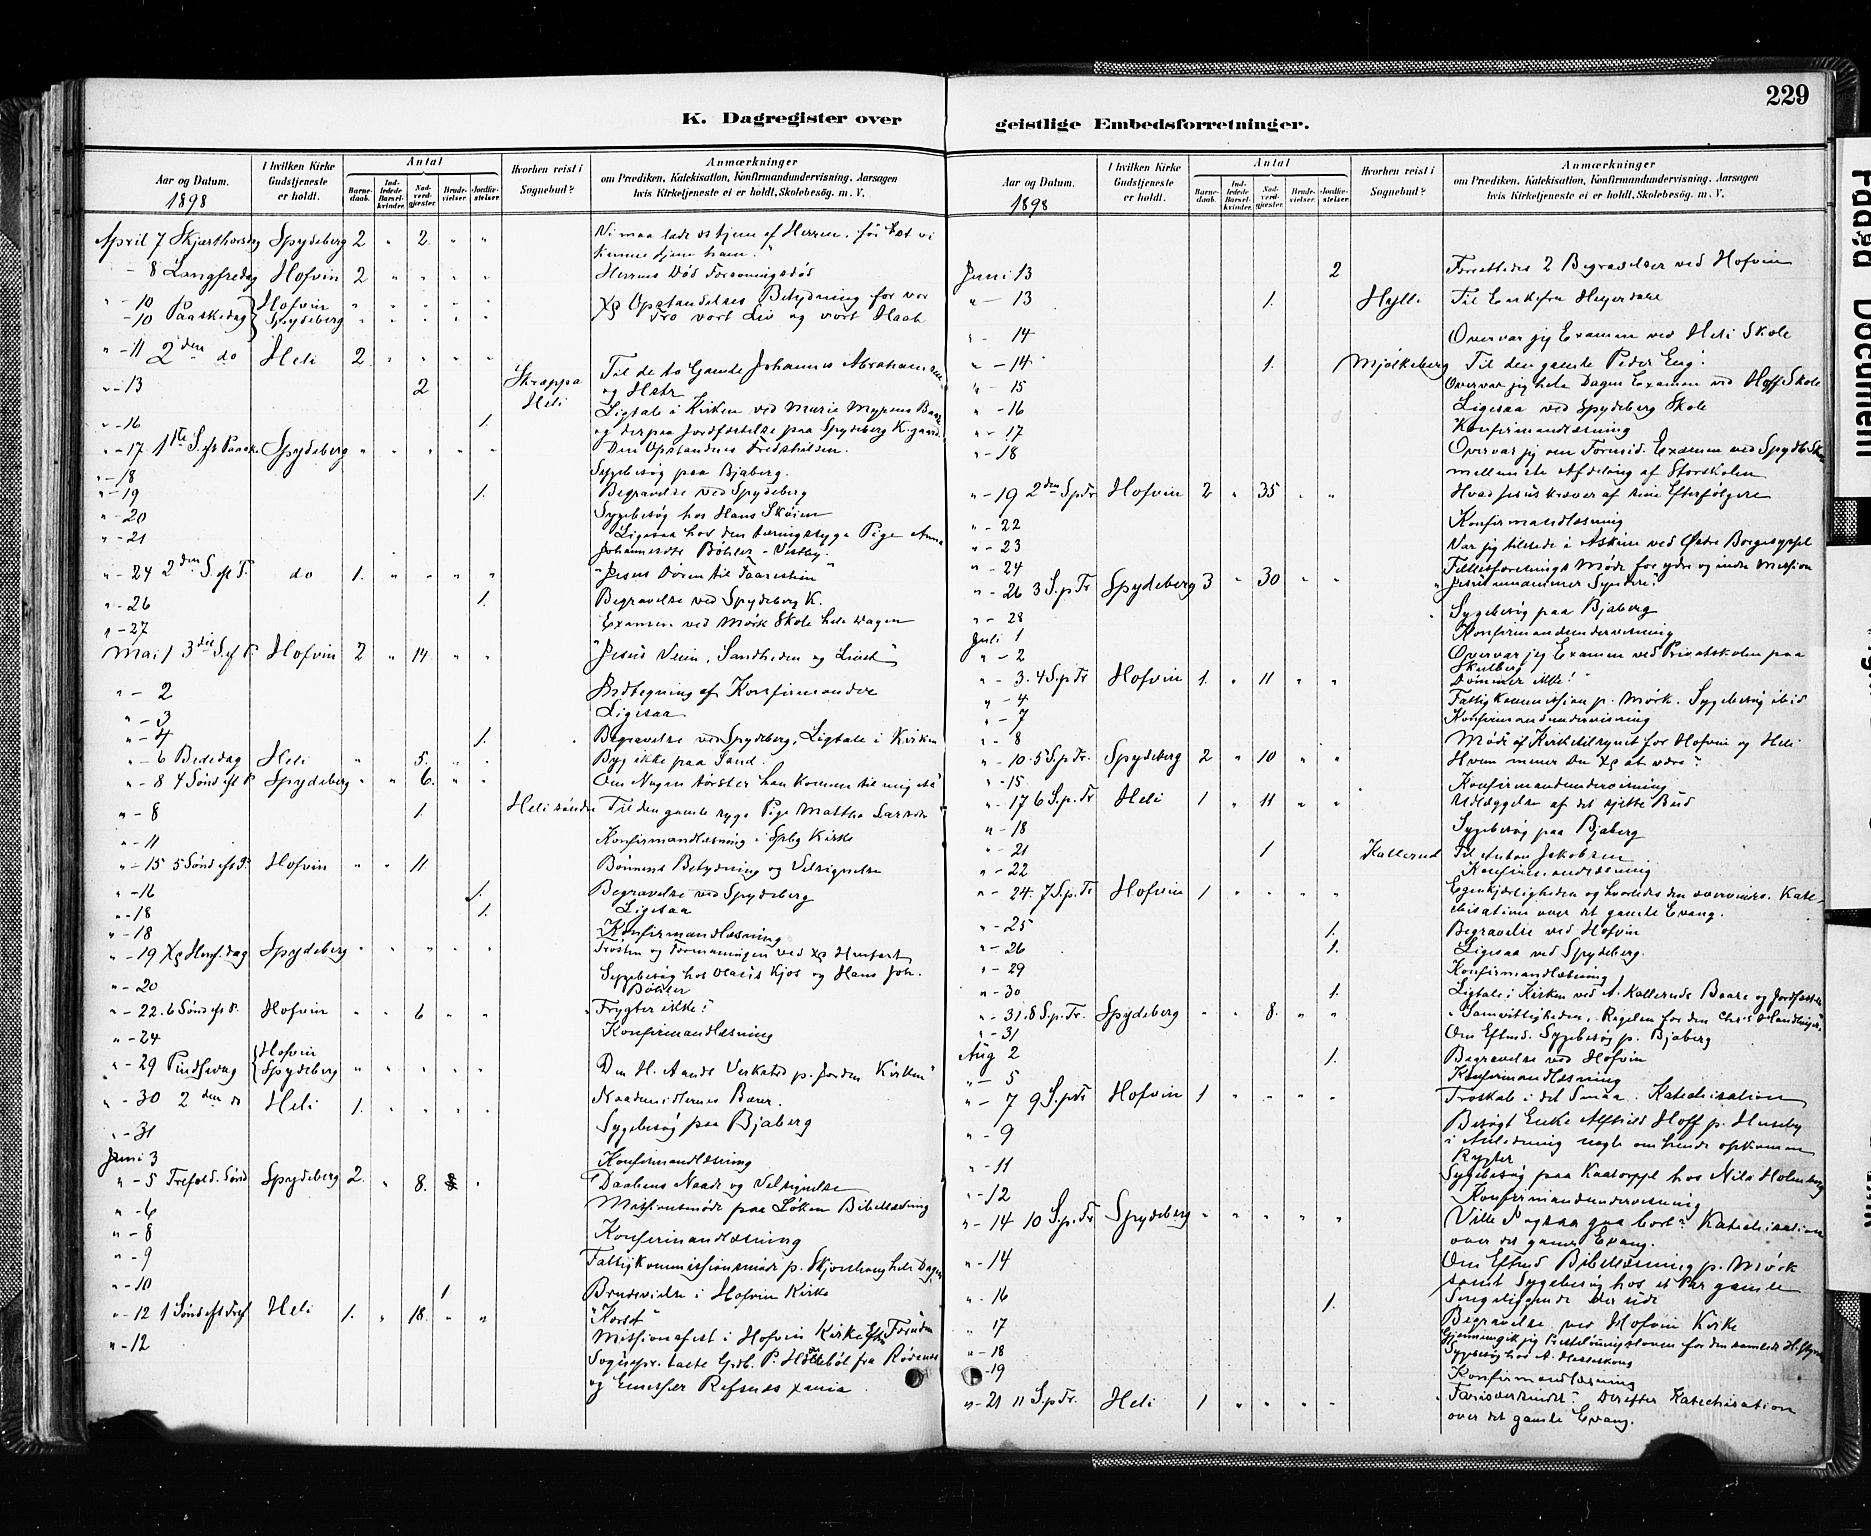 229
K. Dagregister over geistlige Embedsforretninger.
Aar og Datum. I hvilken Kirke Gudstjeneste er holdt. Antal Barne-daab. Ind-ledede Barsel-kvinder. Nad-verd-gjæster. Brude-vielser. Jordfæ-stelser. Hvorhen reist i Sognebud? Anmærkninger om Prædiken, Katekisation, Konfirmandundervisning, Aarsagen hvis Kirketjeneste ei er holdt, Skolebesøg. m. V.
1898
April 7 Skjærthorsdag Spydeberg 2 " 2. " " Vi maa lade os tjene af Herren, før vi
kunne tjene ham."
" - 8 Langfredag Hofvin 2 " " " " Herrens Død Forsoningsdød
" - 10 Hofvin " " " " " Xp Opstandelses Betydning for vor
- 10 Paaskedag Spydeberg " " " " " Tro vort Liv og vort Haab
" - 11 2den do Heli 2 " " " "
" - 13 2 Skrappa Heli Til de to Gamle Johannes Abrahamsen
og Hstr
" - 16 1. Ligtale i Kirken ved Marie Myrens Baare
og derpaa Jordfæstelse paa Spydeberg K.gaard
" - 17 1ste S. eft Paaske Spydeberg " " " " " Den Opstandnes Fredshilsen.
" - 18 Sygebesøg paa Bjaberg.
" - 19 1. Begravelse ved Spydeberg
" - 20 Sygebesøg hos Hans Skøien
" - 21 Ligesaa hos den tæringssyge Pige Anna
Johannesdtr Bøhler - Vestby.
" - 24 2den S. eft P. do 1. " " " " "Jesus Døren til Faarestien"
" - 26 1. Begravelse ved Spydeberg K.
" - 27 Examen ved Mørk Skole hele Dagen
Mai 1 3die S. ef P. Hofvin 2 " 14 " " "Jesus Veien, Sandheden og Livet"
" - 2 Indtegning af Konfirmander
" - 3 Ligesaa
" - 4 1. Begravelse ved Spydeberg, Ligtale i Kirken
" - 6 Bededag Heli " 5. " " Byg ikke paa Sand.
" - 8 4 Sønd eft P. Spydeberg " " 6. " " Om Nogen tørster han komme til mig
" - 8 1. Heli søndre Til den gamle syge Pige Mathea Larsdtr
" - 11 Konfirmandlæsning i Spbg Kirke
" - 15 5 Sønd eft P. Hofvin " " 11 Bønnens Betydning og Velsignelse
" - 16 1. Begravelse ved Spydeberg
" - 18 1. Ligesaa
" - 18 Konfirmandlæsning
" - 19 Xp Himf. dag Spydeberg " " " " " Trøsten og Formaningen ved Xp Himfart
" - 20 Sygebesøg hos Kjos og Hans Joh.
Bøhler
" - 22. 6 Sønd eft P. Hofvin " " 6 " " "Frygter ikke!"
" - 24 Konfirmandlæsning
" - 29 Pindsedag Hofvin Spydeberg " " " " " Den H. Aands Verksted p. Jorden Kirken"
" - 30 2den do Heli 1. " " " " Naademidlernes Bærer.
" - 31 Sygebesøg paa Bjaberg
Juni 3 Konfirmandlæsning
" - 5 Trefold. Sønd Spydeberg 2. " 8. " Daabens Naade og Velsignelse
" - 6 Missionsmøde paa Løken Bibellæsning
" - 8 Konfirmandlæsning
" - 9 Fattigkommissionsmøde p. Skjonhaug hele Dagen
" - 10 1 Brudevielse i Hofvin Kirke
" - 12 1 Sønd eft Tref. Heli 1. " 18. " " "Korset"
" - 12 Missionsfest i Hofvin Kirke
Sognepr. talte P. Holtebøl fra Rødenes
og Emissær Refsnes
1898
Juni 13 2 Forrettedes 2 Begravelser ved Hofvin
" - 13 1. Hylli Til Enkefru Heyerdahl
" - 14 Overvar jeg Examen ved Heli Skole
" - 14 1. Mjølkeberg Til den gamle Peder Eng.
" - 15 Overvar jeg hele Dagen Examen ved Hoff Skole
" - 16 Ligesaa ved Spydeberg Skole
" - 17 Konfirmandlæsning
" - 18 Overvar jeg om Formid. Examen ved Spydb Skoles
mellemste Afdeling af Storskolen
" - 19 2den S.p.Tr Hofvin 2 " 35 " " Hvad Jesus kræver af sine Efterfølgere
" - 22 Konfirmandlæsning
" - 23 Var jeg tilstede i Askim ved Østre Borgesyssel
" - 24 Fællesforenings Møde for ydre og indre Mission
" - 26 3 S.p.Tr Spydeberg 3 " 30 " " "Jesus annammer Syndere."
" - 28 Sygebesøg paa Bjaberg
Juli 1 Konfirmandundervisning
" - 2 Overvar jeg Examen ved Privatskolen paa
Skulberg
" - 3. 4 S.p.Tr Hofvin 1. " 11 " " Dømmer ikke!"
" - 4 Fattigkommission p. Mørk. Sygebesøg ibid
" - 7 Konfirmandundervisning
" - 8 Møde af Kirketilsynet for Hofvin og Heli
" - 10. 5 S.p.Tr. Spydeberg 2 " 10 " " Hvem mener Du Xp at være?
" - 15 Konfirmandundervisning
" - 17 6 S.p.Tr Heli 1 " 11 " " Udlæggelse af det sjette Bud
" - 18 Sygebesøg paa Bjaberg
" - 21 1 Kallerud Til Anton Jakobsen
" - 22 Konfirmandlæsning
" - 24. 7 S.p.Tr Hofvin 1 " " " " Egenkjærligheden og hvorledes den overvindes. Kate-
chisation over det gamle Evang.
" - 25 1. Begravelse ved Hofvin
" - 26 1. Ligesaa ved Spydeberg.
" - 29 Konfirmandlæsning
" - 30 1. Ligtale i Kirken ved A. Kalleruds Baare og Jordfæstelse
" - 31. 8 S.p.Tr. Spydeberg " " 8. " " "Samvittigheden, Regelen for den Chr.s Handlinger"
" - 31 Om Eftmd. Sygebesøg p. Bjaberg
Aug 2 1. Begravelse ved Hofvin
" - 5 Konfirmandlæsning
" - 7 9 S.p.Tr Hofvin 1 " " " " Troskab i det Smaa. Katechisation
" - 9 Besøgt Enke Alfhild Hoff p. Huseby
i Anledning nogle om hende opkomne
Rygter
" - 11 Sygebesøg paa hos Nils Holmberg
" - 12 Konfirmandundervisning
" - 14 10 S.p.Tr Spydeberg " " " " " Ville I ogsaa gaa bort? Katechisation
over det gamle Evang.
" - 14 Om Eftmd Bibellæsning p. Mørk
samt Sygebesøg hos et Par gamle
Sengeliggende der ude
" - 16 1. Begravelse ved Hofvin Kirke
" 17 Gjennemgik jeg for den samlede
" - 18 Sygebesøg hos A.
" - 19 Konfirmandlæsning
" - 21 11 S.p.Tr. Heli 1 " " " " Derefter Katechisation
over det gamle Evang.